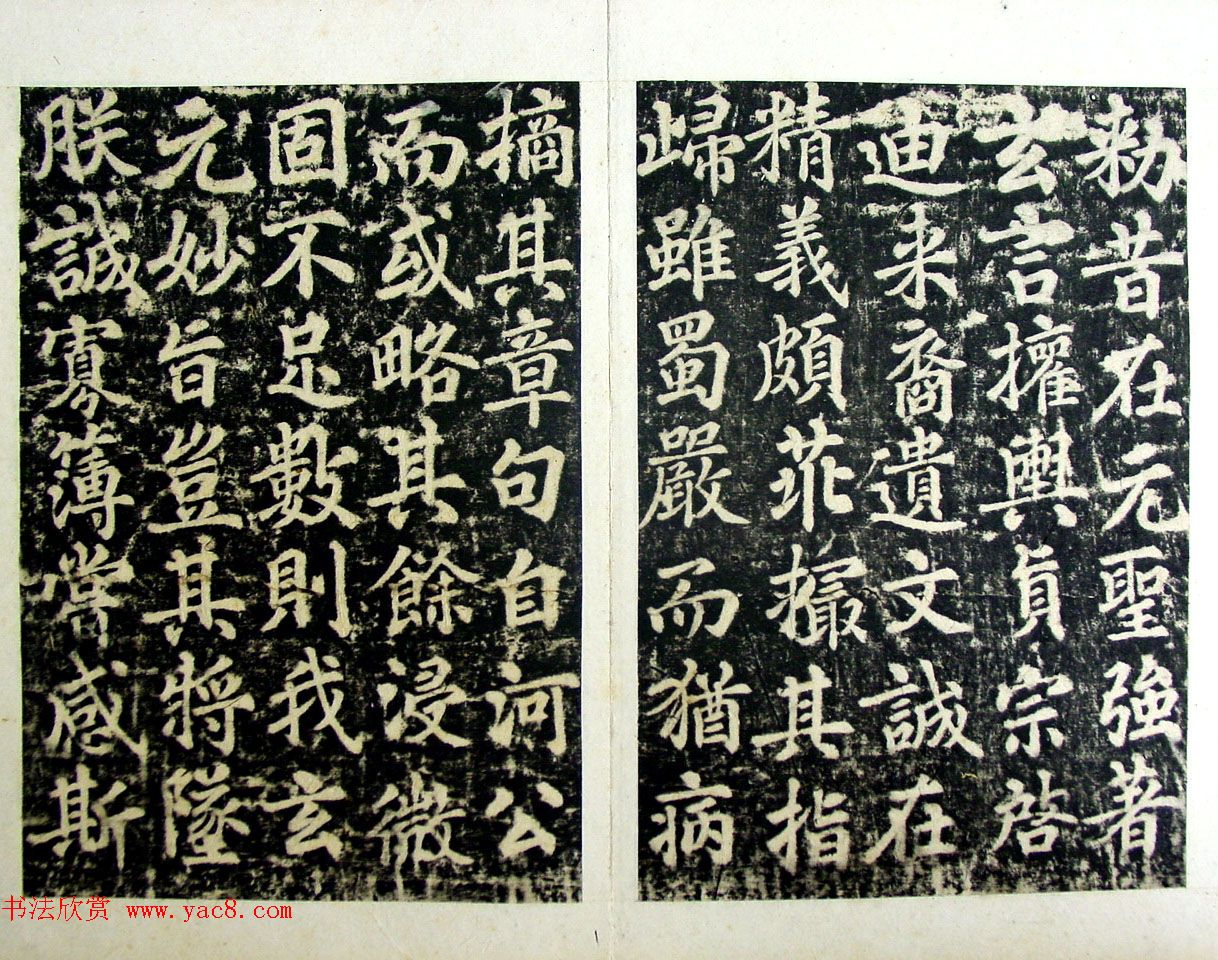 敕昔在元聖強著
玄言權輿真宗啓
迪来裔遺文誠在
精義頗乖撮其指
歸雖蜀嚴而猶病
摘其章句自河公
而或略其餘浸微
固不足數則我玄
元妙旨豈其將墜
朕誠寡薄嘗感斯
书法欣赏 www.yac8.com